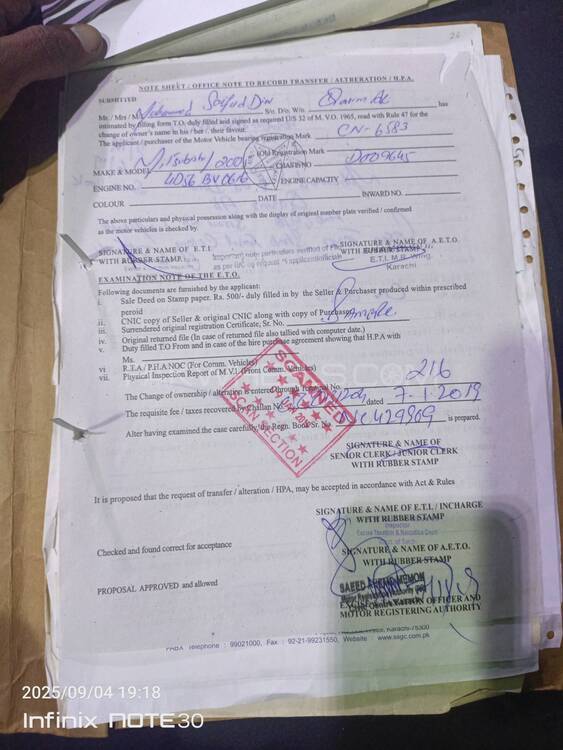 26
NOTE SHEET / OFFICE NOTE TO RECORD TRANSFER / ALTRERATION / H.P.A.
SUBMITTED
Mr. / Mrs / M/s. Mohammad Saeed ud Din S/o. D/o. W/o. has
intimated by filling form T.O. duly filled and signed as required U/S 32 of M. V.O. 1965, read with Rule 47 for the
change of owner's name in his / her, their favour.
The applicant / purchaser of the Motor Vehicle bearing registration Mark CN-6583
(Old Registration Mark
MAKE & MODEL Mitsubishi / 2001 CHASIS NO D009645
ENGINE NO. 4D56 ENGINE CAPACITY
COLOUR DATE INWARD NO.
The above particulars and physical possession along with the display of original number plats verified / confirmed
as the motor vehicles is checked by.
SIGNATURE & NAME OF E.T.I. SIGNATURE & NAME OF A.E.T.O.
WITH RUBBER STAMP WITH RUBBER STAMP
E.T.I. M.R. Wing
Karachi
EXAMINATION NOTE OF THE E.T.O.
Following documents are furnished by the applicant:
Sale Deed on Stamp paper. Rs. 500/- duly filled in by the Seller & Purchaser produced within prescribed
peroid
ii. CNIC copy of Seller & original CNIC along with copy of Purchaser
iii. Surrendered original registration Certificate, Sr. No.
iv. Original returned file (In case of returned file also tallied with computer date.)
v. Duly filled T.O From and in case of the hire purchase agreement showing that H.P.A with
Ms.
vi R.E.A / P.H.A NOC (For Comm. Vehicles)
vii. Physical Inspection Report of M.V.I. (From Comm. Vehicles)
SCANNED
SCAN SECTION
216
The Change of ownership / alteration is entered through Terminal No. dated 7-1-2019
The requisite fee / taxes recovered by Challan No.
After having examined the case carefully the Regn. Book Sr. No. 429969 is prepared.
SIGNATURE & NAME OF
SENIOR CLERK / JUNIOR CLERK
WITH RUBBER STAMP
It is proposed that the request of transfer / alteration / HPA, may be accepted in accordance with Act & Rules
SIGNATURE & NAME OF E.T.I. / INCHARGE
WITH RUBBER STAMP
Inspector
Excise Taxation & Narcotics Dept.
Govt. of Sindh
Checked and found correct for acceptance
SIGNATURE & NAME OF A.E.T.O.
WITH RUBBER STAMP
PROPOSAL APPROVED and allowed
SAEED MEMON
EXCISE TAXATION OFFICER AND
MOTOR REGISTERING AUTHORITY
Karachi-75300
PABX Telephone : 99021000, Fax : 92-21-99231550, Website : www.ssgc.com.pk
2025/09/04 19:18
Infinix NOTE30